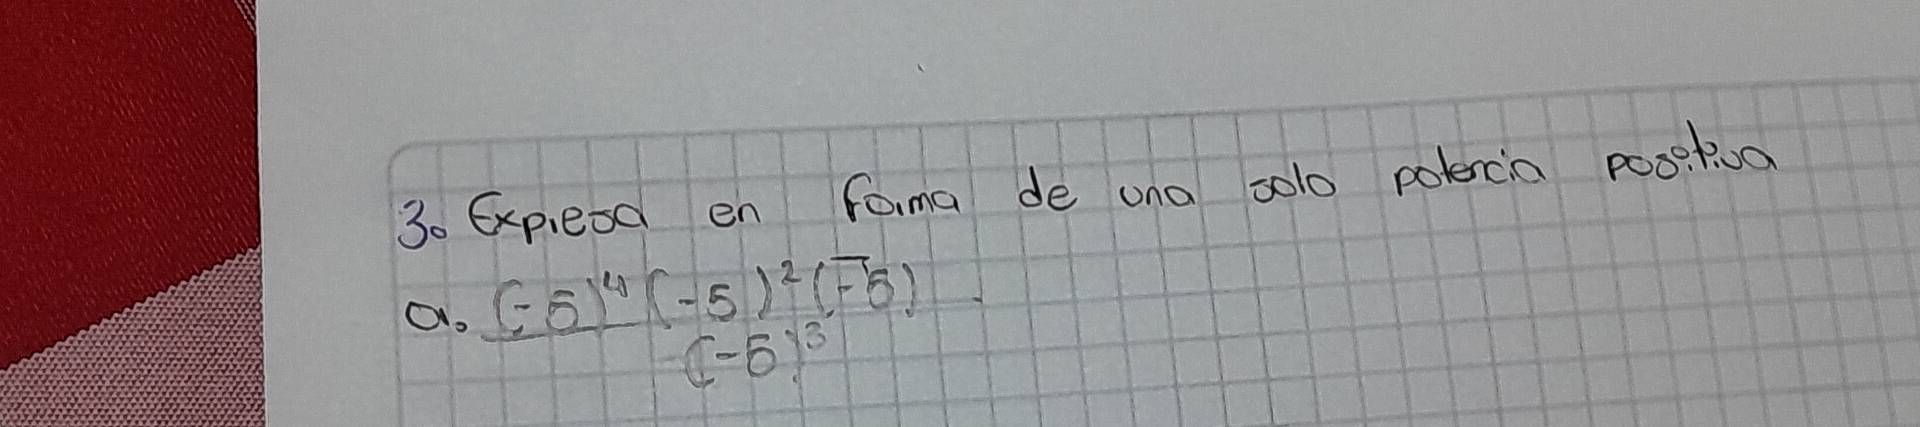 3. Expresa en forma de una solo potencia positiva
a. (-5)⁴(-5)²(-5)
(-5)³